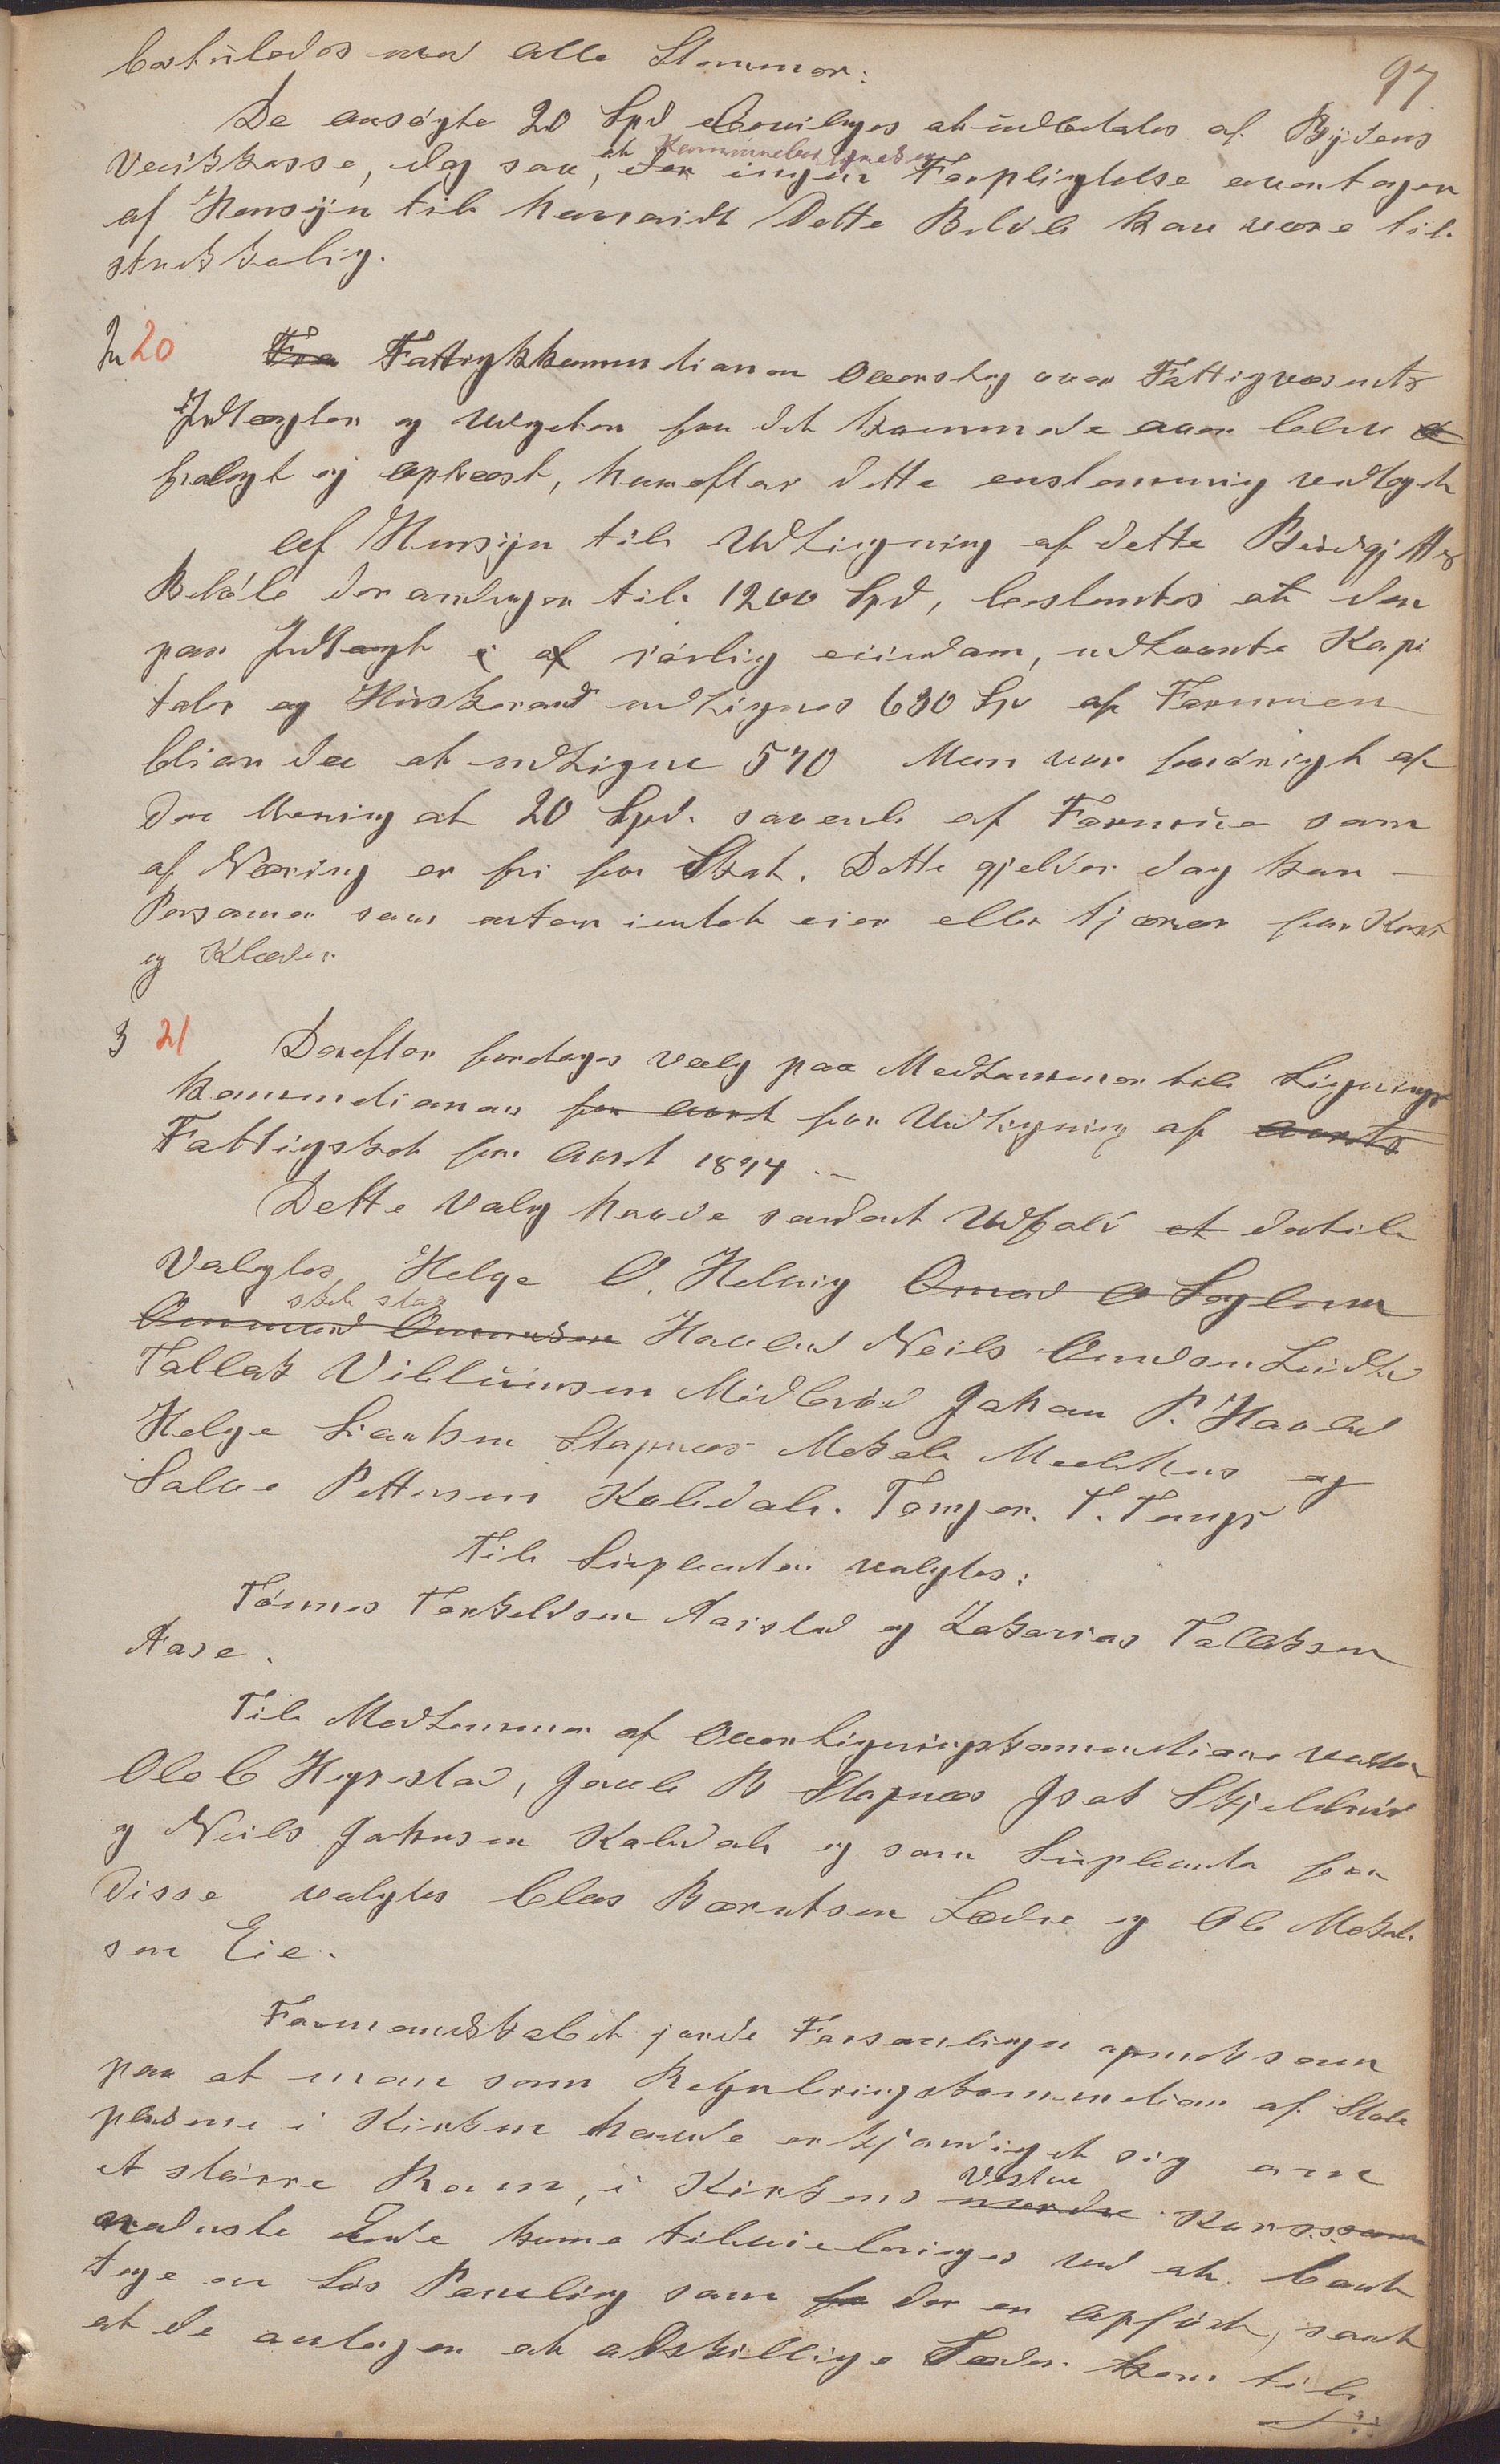 besluttedes med alle Stemmer:
97
De ansøgte 20 Spd bevilges at udbetales af Bydens
Veikasse, dog saa, at Kommunebestyrelsen ingen Forpligtelse paatager
af Hensyn til hvorvidt Dette Beløb kan være til
strækkelig.
20 Fra Fattigkkommitionen Overslag over Fattigvæsents
Indtægter og Udgifter for det kommende aar blev
fralagt og oplæst, hvorefter dette enstemmig vedtoges
Af Hensyn til Udligning af dette Budgjetts
Beløb der andrager til 1200 Spd, besluttes at der
paa Indtægt af rørlig eiendom, udlaante Kapi
taler og Huskorand udlignes 630 Spd af Formuen
bliver da at udligne 570 Man var forøvrigt af
den Mening at 20 Spd. saavel af Formue som
af Næring er fri for Skat. Dette gjelder dog kun
Personer som enten intet eier eller tjener for Kost
og Klæder.
3 21 Derefter foretoges valg paa Medlemmer til Lignings
kommitionen for aaret for Udligning af aarets
Fattigskat for Aaret 1874 –
Dette Valg havde saadant Udfald at dertil
Valgtes Helge O. Helvig Omund O Søgleim
Ommund Ommundsen Havlad Neils Omdsen Leidle
Tallak Villumsen Midbrød Johan P. Havlad
Helge Larsen Stapnæs Mekel Mælhus og
Salve Pettersen Kaldal. Tonger. T. Tengs
Til Supleanter valgtes:
Tønnes Torkeldsen Aarstad og Zakarias Tallaksen
Aase.
Til Medlemmer af Overligningskommitione valtes
Ole C Hegrestad, Jacob B Stapnæs Isak Skjelbred
og Neils Johnsen Kaldal og som Supleanter for
disse valgtes Claus Berntsen Lædre og Ole Mekel
sen Eie.
Formandskabet gjorde Forsamlingen opmerksom
paa at man som Reguleringskommition af Stole
pladsene i Kirken havde erkyndiget sig om
et større Rom, i Kirkens nordre Vestre Kors som
nederste Ende kunne tilveiebringes ved at bort
tage en løs Paneling som der er opført, samt
at de antager at adskillige Sæder kom til